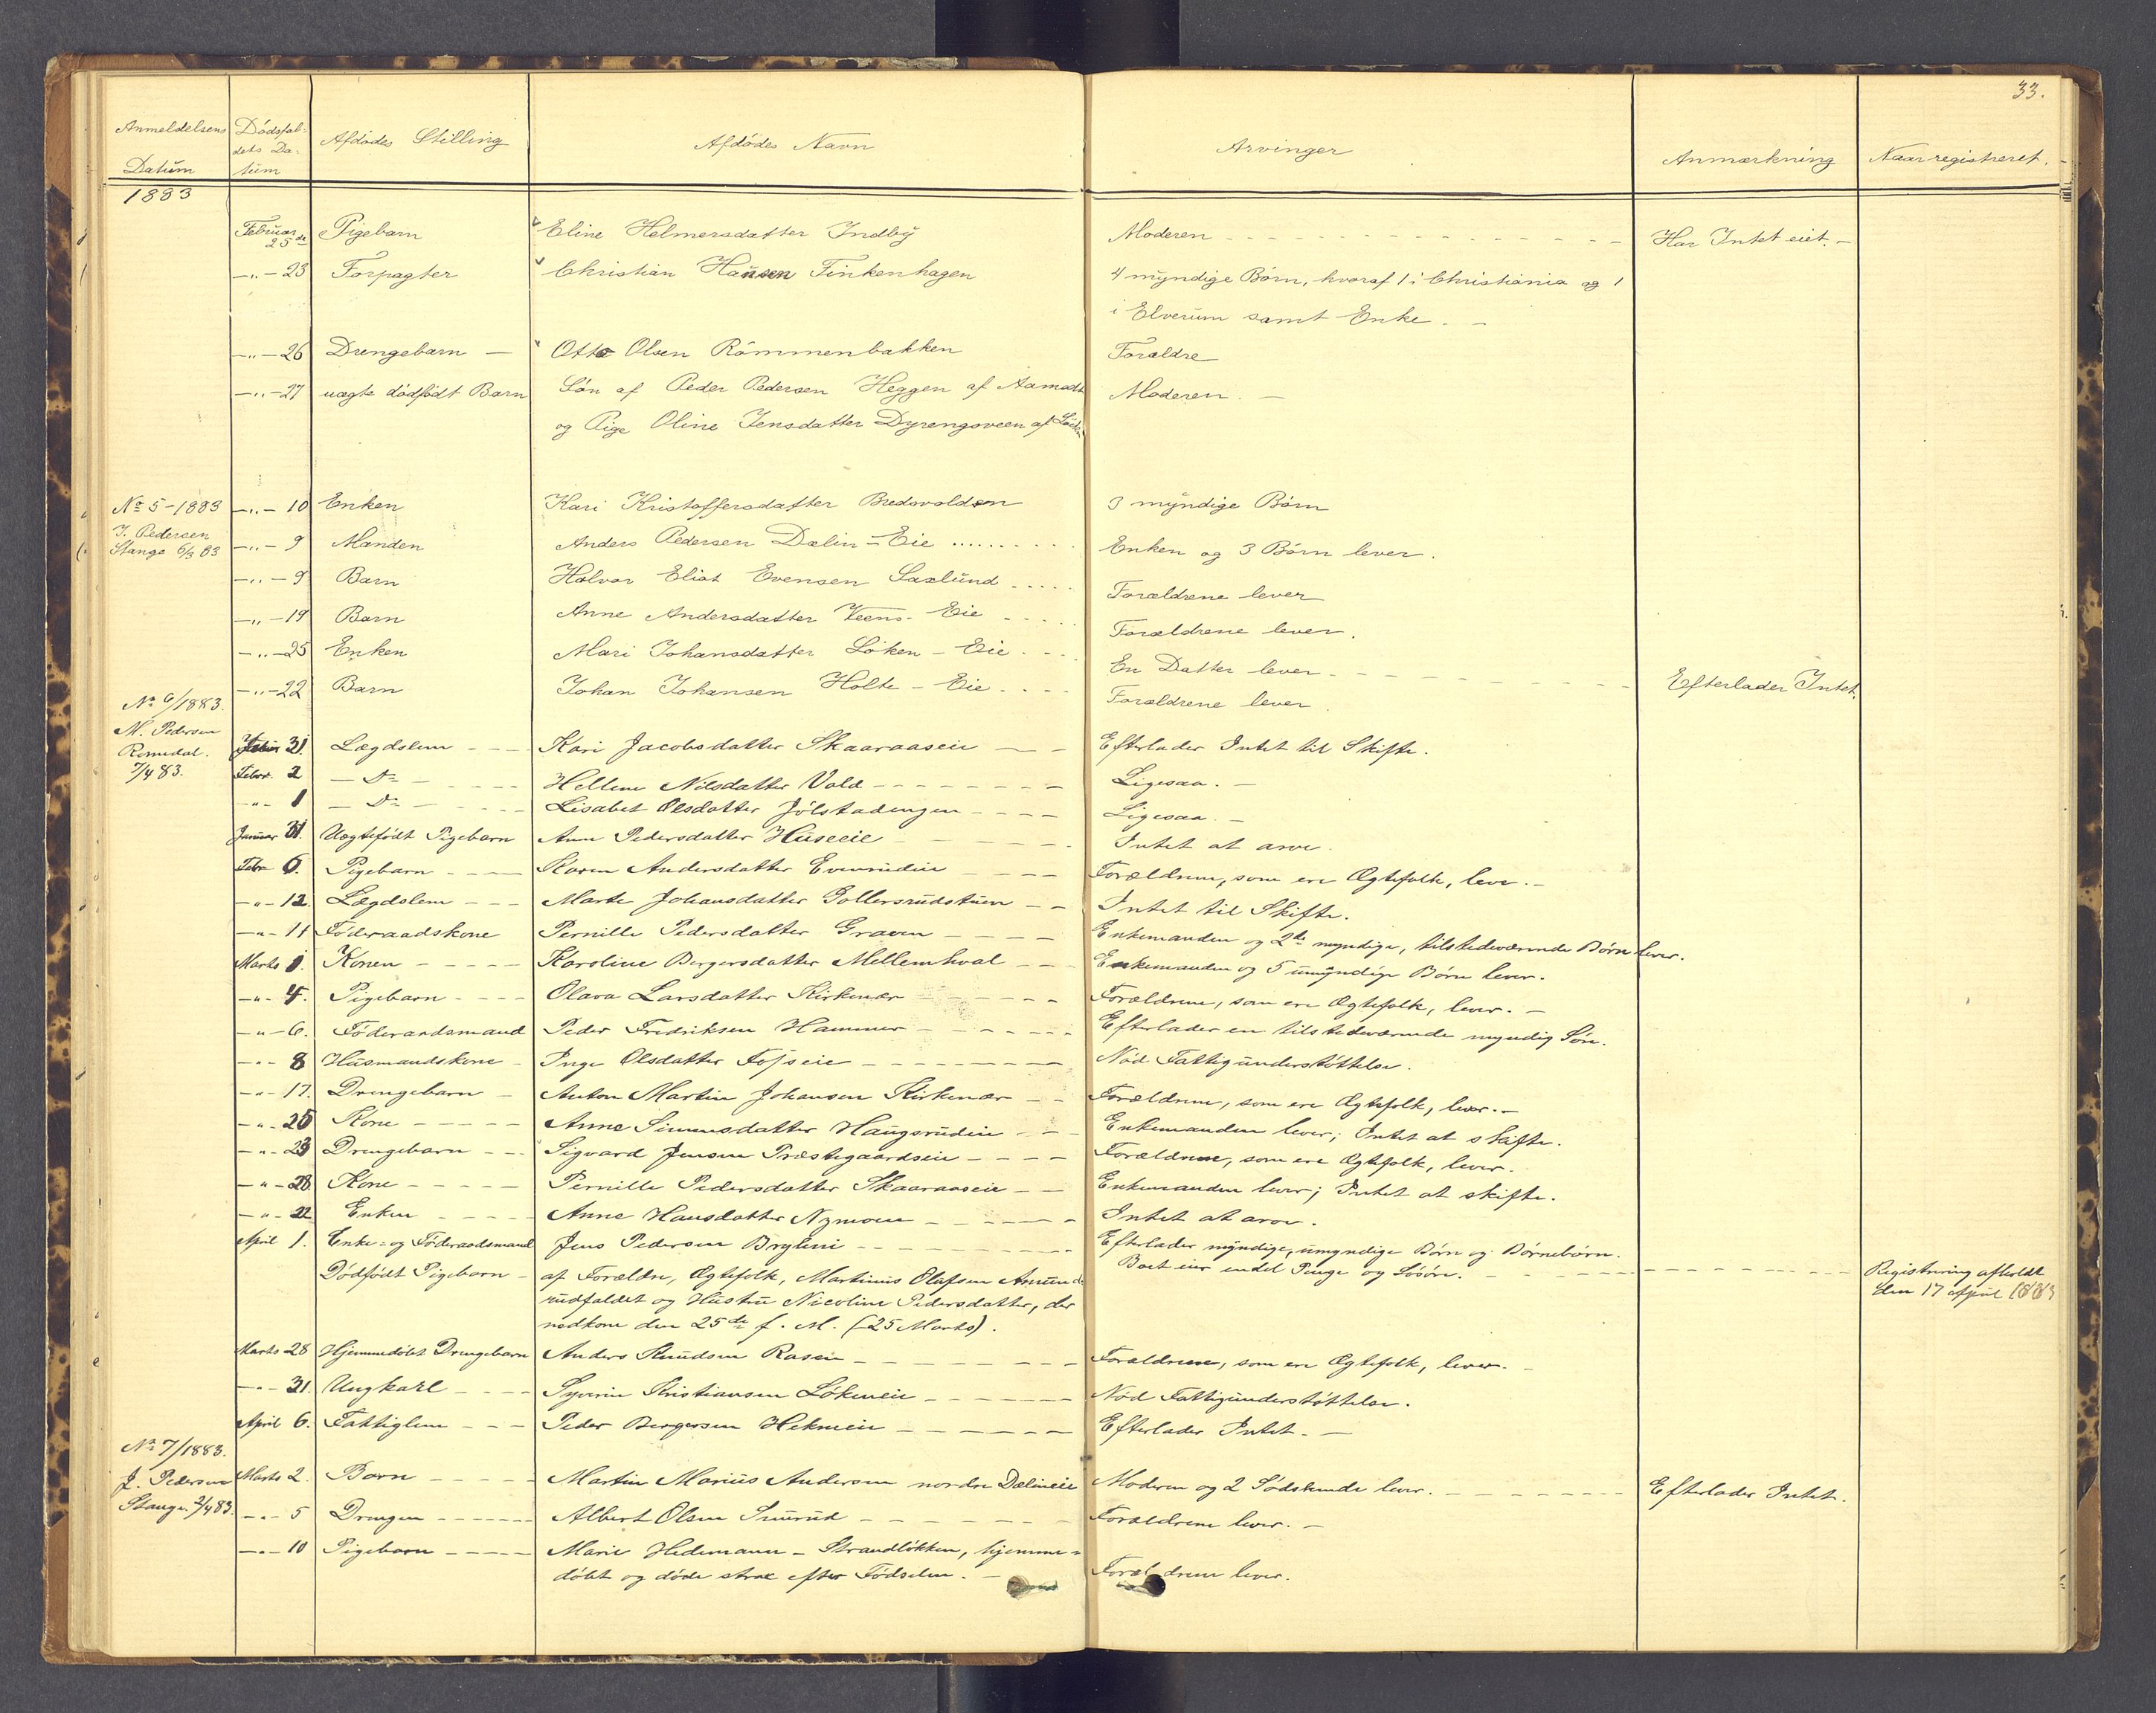 33.
Anmeldelsens Datum | Dødsfaldets Datum | Afdødes Stilling | Afdødes Navn | Arvinger | Anmærkning | Naar registreret.
1883
Februar 25de | Pigebarn | Eline Helmersdatter Indbÿ | Moderen | Har Intet eiet.
-"- 23 | Forpagter | Christian Hansen Finkenhagen | 4 mÿndige Børn, hvoraf 1 i Christiania og 1
i Elverum samt Enke.
-"- 26 | Drengebarn | Otto Olsen Rømmenbakken | Forældre
-"- 27 | uægte dødfødt Barn | Søn af Peder Pedersen Heggen af Aamodt | Moderen.
og Pige Oline Jensdatter Dyrengsveen af
No 5-1883 | -"- 10 | Enken | Kari Kristoffersdatter Bredsvolden | 3 mÿndige Børn
J. Pedersen
Stange 6/3 83 | -"- 9 | Manden | Anders Pedersen Dælin-Eie | Enken og 3 Børn lever.
-"- 9 | Barn | Halvor Elias Evensen Saxlund | Forældrene lever
-"- 19 | Barn | Anne Andersdatter Veens-Eie | Forældrene lever.
-"- 25 | Enken | Mari Johansdatter Løken-Eie | En Datter lever | Efterlader Intet.
-"- 22 | Barn | Johan Johansen Holte-Eie | Forældrene lever
No 6/1883.
M. Pedersen
Romedal.
7/4 83.
31. | Lægdslem | Kari Jacobsdatter Skaaraaseie | Efterlader Intet til Skifte.
Febr. 2 | Do | Hellene Nilsdatter Vold | Ligesaa.
-"- 1 | Do | Lisabet Olsdatter Jølstadengen | Ligesaa.
Januar 31. | Uægtefødt Pigebarn | Anne Pedersdatter Huseeie | Intet at arve.
Febr 6. | Pigebarn | Karen Andersdatter Evenrudeie | Forældrene, som ere Ægtefolk, lever.
-"- 12. | Lægdslem | Marte Johansdatter Gollersrudstuen | Intet til Skifte.
-"- 11 | Føderaadskone | Pernille Pedersdatter Graven | Enkemanden og 2de myndige, tilstedeværende Børn lever.
Marts 1. | Konen | Karoline Bergersdatter Mellemhval | Enkemanden og 5 umÿndige Børn lever.
-"- 4. | Pigebarn | Olava Larsdatter Kirkenær | Forældrene, som ere Ægtefolk, lever.
-"- 6. | Føderaadsmand | Peder Fredriksen Hammer | Efterlader en tilstedeværende myndig Søn.
-"- 8 | Husmandskone | Inge Olsdatter Fojseie | Nød Fattigunderstøttelse.
-"- 17. | Drengebarn | Anton Martin Johansen Kirkenær | Forældrene, som ere Ægtefolk, lever.
-"- 25 | Kone | Anne Simensdatter Haugsrudeie | Enkemanden lever; Intet at skifte.
-"- 23 | Drengebarn | Sigvard Jensen Præstegaardseie | Forældrene, som ere Ægtefolk, lever.
-"- 28. | Kone | Pernille Pedersdatter Skaaraaseie | Enkemanden lever; Intet at skifte.
-"- 22 | Enken | Anne Hansdatter Nymoen | Intet at arve.
April 1. | Enke- og Føderaadsmand | Jens Pedersen Bryhni | Efterlader mÿndige, umyndige Børn og Børnebørn.
Boet eier endel Penge og Løsøre. | Registrering afholdt
den 17 April 1883
Dødfødt Pigebarn | af Forældre, Ægtefolk, Martinus Olafsen Amund-
rudfaldet og Hustru Nicoline Pedersdatter, der
nedkom den 25de f. M. (25 Marts).
Marts 28 | Hjemmedøbt Drengebarn | Anders Knudsen Raseie | Forældrene, som ere Ægtefolk, lever.
-"- 31. | Ungkarl | Syverin Kristiansen Løkeneie | Nød Fattigunderstøttelse.
April 6. | Fattiglem | Peder Bergersen Hekneeie | Efterlader Intet.
No 7/1883.
J. Pedersen
Stange 3/4 83.
Marts 2. | Barn | Martin Marius Andersen nordre Dælineie | Moderen og 2 Sødskende lever. | Efterlader Intet.
-"- 5 | Drengen | Albert Olsen | Forældrene lever.
-"- 10 | Pigebarn | Marie Hedemann - Strandløkken, hjemme-
døbt og døde strax efter Fødselen. | Forældrene lever.